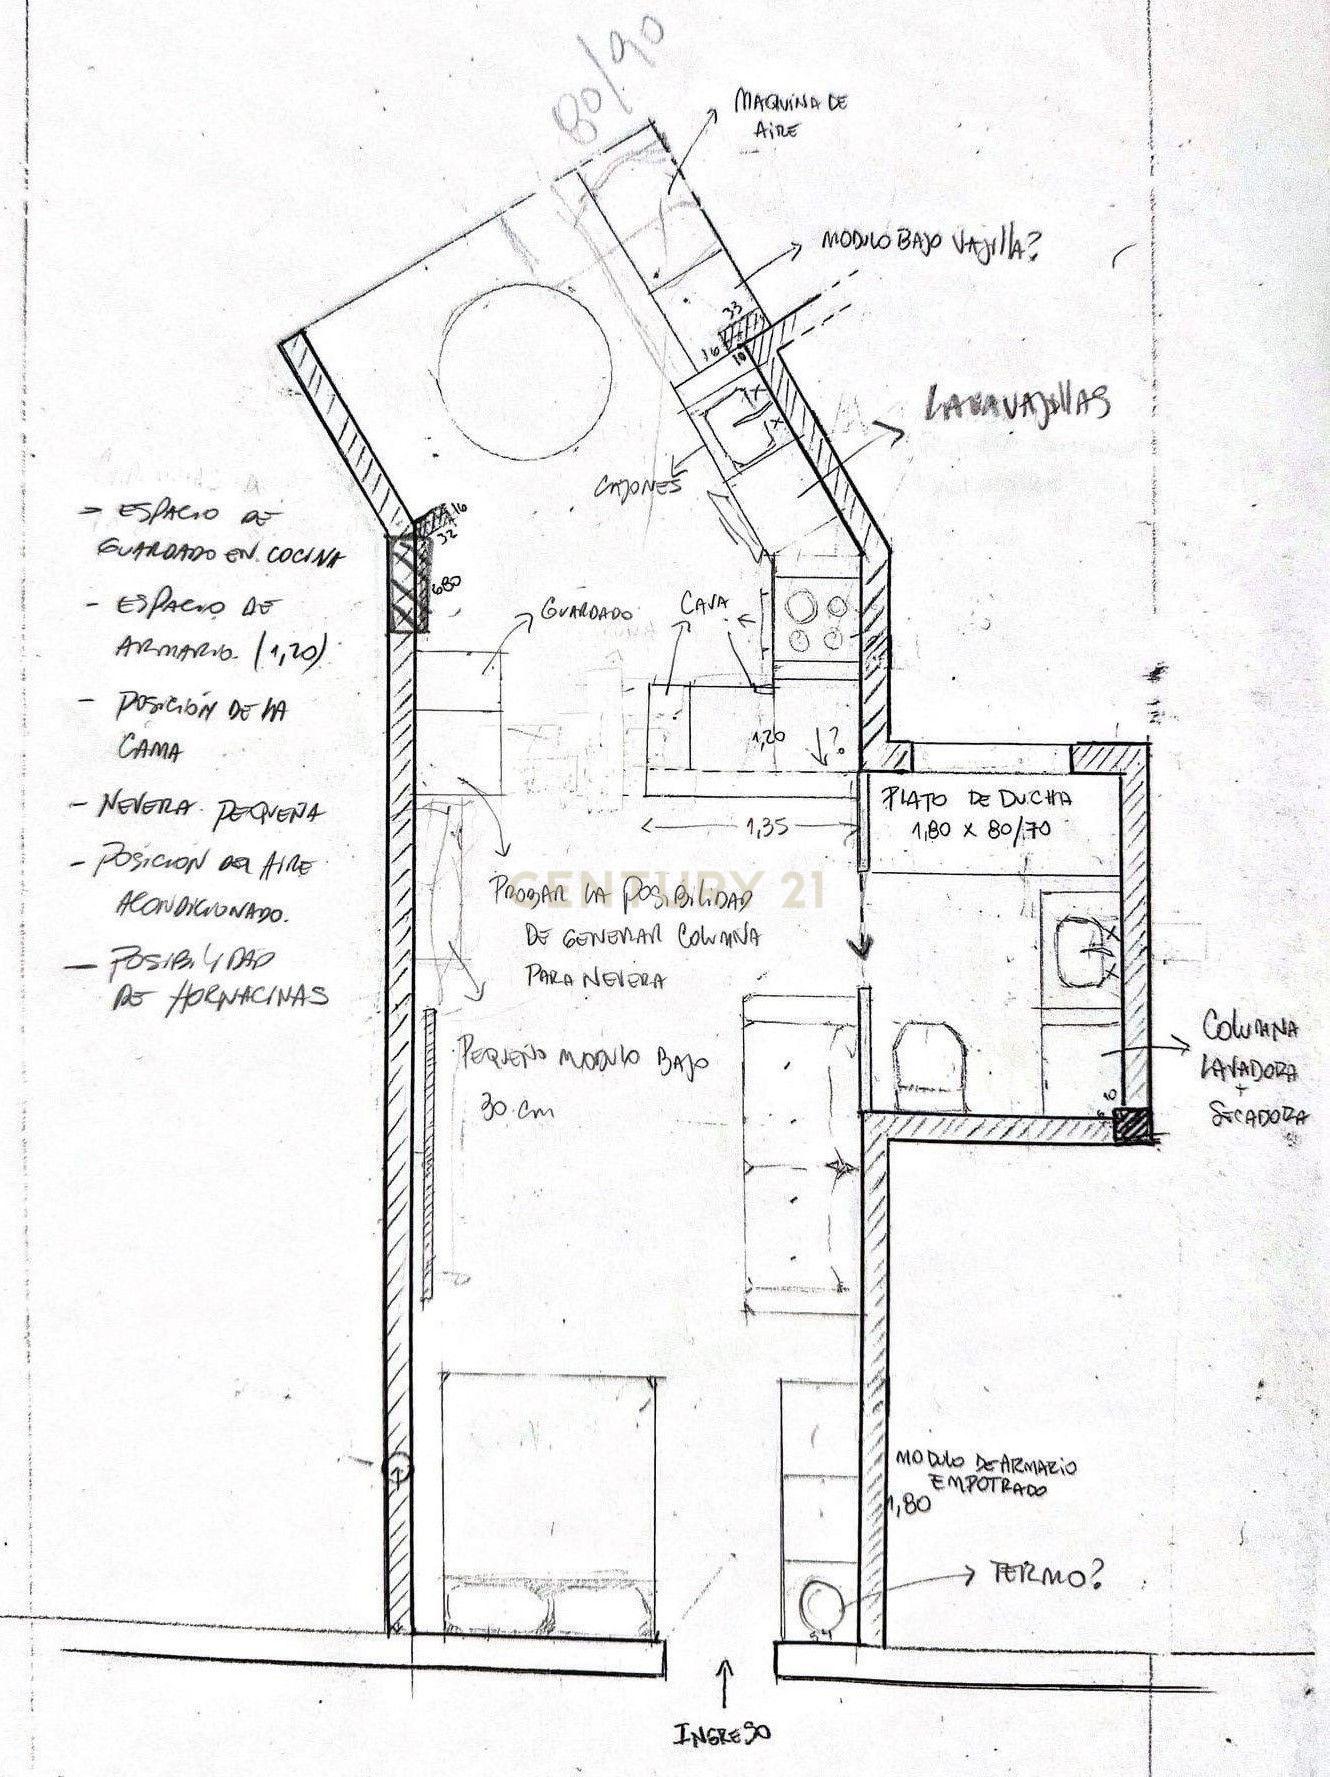 80/90
MAQUINA DE
AIRE
MODULO BAJO VAJILLA?
33
16
10
LAVAVAJILLAS
CAJONES
- ESPACIO DE
GUARDADO EN COCINA
- ESPACIO DE
ARMARIO. (1,20)
- POSICIÓN DE LA
CAMA
- NEVERA PEQUEÑA
- POSICION DEL AIRE
ACONDICIONADO.
- POSIBILIDAD
DE HORNACINAS
16
32
680
GUARDADO
CAVA
1,20
?
1,35
PLATO DE DUCHA
1,80 x 80/70
CENTURY 21
PROBAR LA POSIBILIDAD
DE GENERAR COLUMNA
PARA NEVERA
PEQUEÑO MODULO BAJO
30 cm
COLUMNA
LAVADORA
+
SECADORA
MODULO DE ARMARIO
EMPOTRADO
1,80
TERMO?
INGRESO